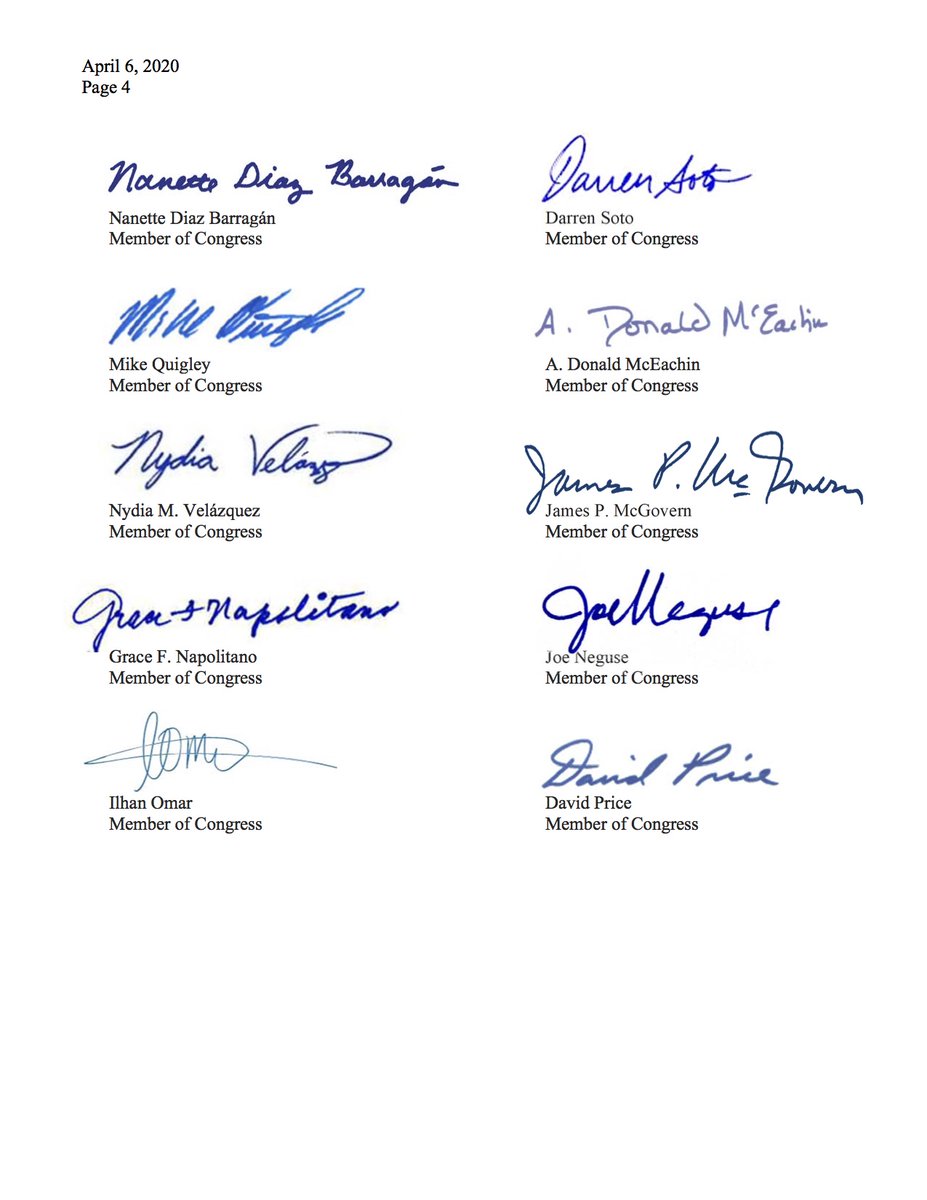 April 6, 2020
Page 4
Nanette Diaz Barragán
Darren Soto
Nanette Diaz Barragán
Member of Congress
Darren Soto
Member of Congress
Mike Quigley
A. Donald McEachin
Mike Quigley
Member of Congress
A. Donald McEachin
Member of Congress
Nydia Velázquez
James P. McGovern
Nydia M. Velázquez
Member of Congress
James P. McGovern
Member of Congress
Grace F Napolitano
Joe Neguse
Grace F. Napolitano
Member of Congress
Joe Neguse
Member of Congress
David Price
Ilhan Omar
Member of Congress
David Price
Member of Congress